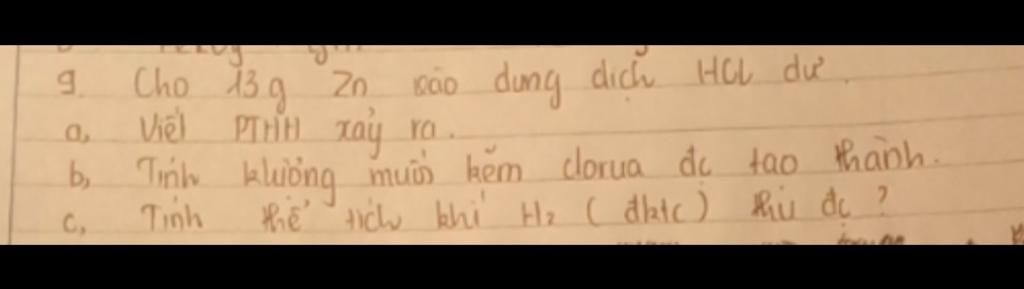 9. Cho 13g Zn vào dung dịch HCl dư.
a, Viết PTHH xảy ra.
b, Tính k/lường muối kẽm clorua đc tạo thành.
c, Tính thể tích khí H₂ (đktc) thu đc?